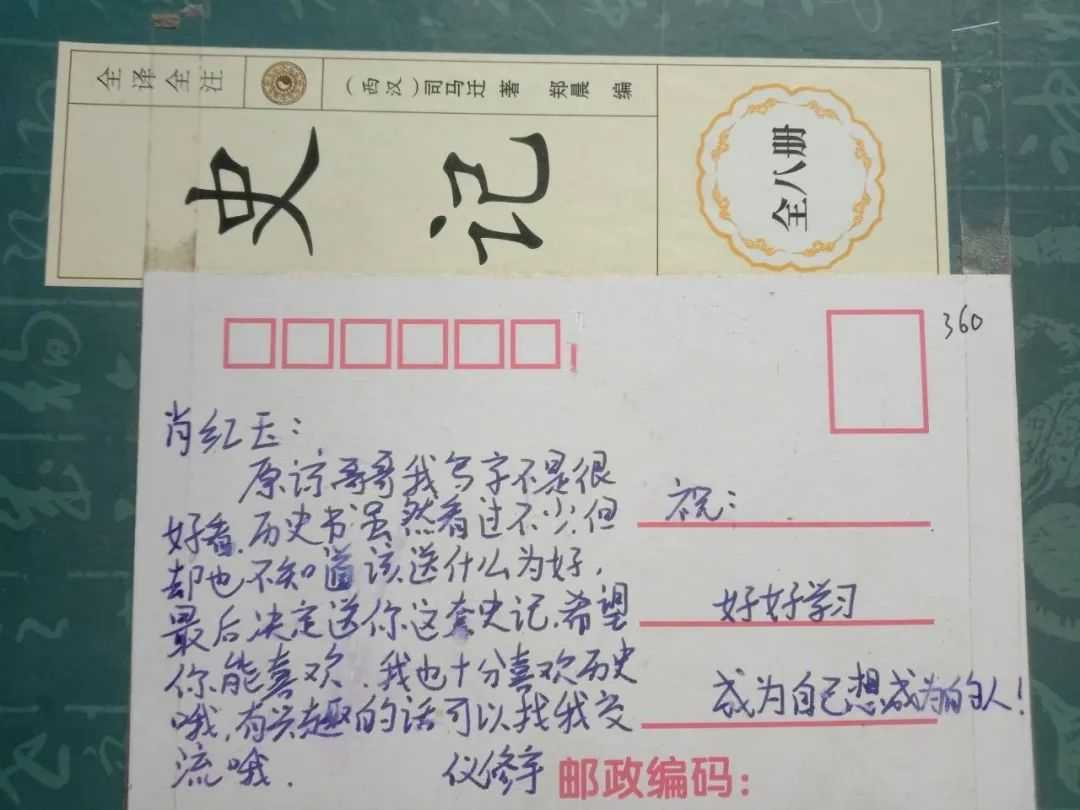 全译全注
（西汉）司马迁 著 郑晨 编
史记
全八册
360
肖红玉：
原谅哥哥我写字不是很
好看，历史书虽然看过不少，但
却也不知道该送什么为好，
最后决定送你这套史记，希望
你能喜欢，我也十分喜欢历史
哦，有兴趣的话可以找我交
流哦.
祝：
好好学习
成为自己想成为的人！
邮政编码：